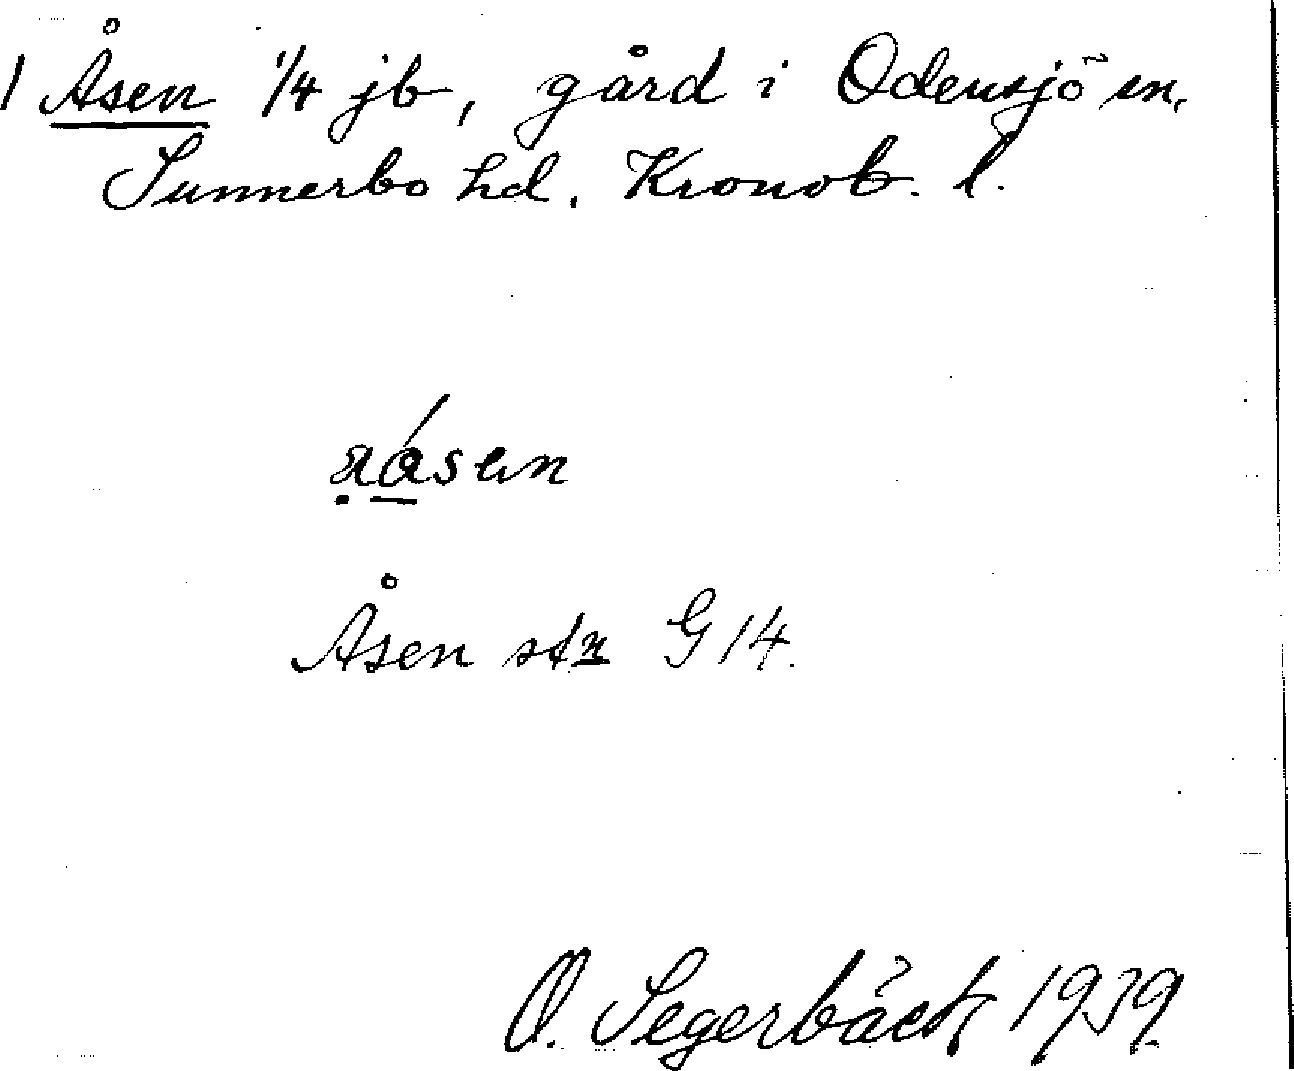 1 Åsen 1/4 jb, gård i Odensjö sn.
Sunnerbo hd. Kronob. l.
Åsen stn G 14.
O. Segerbäck 1939